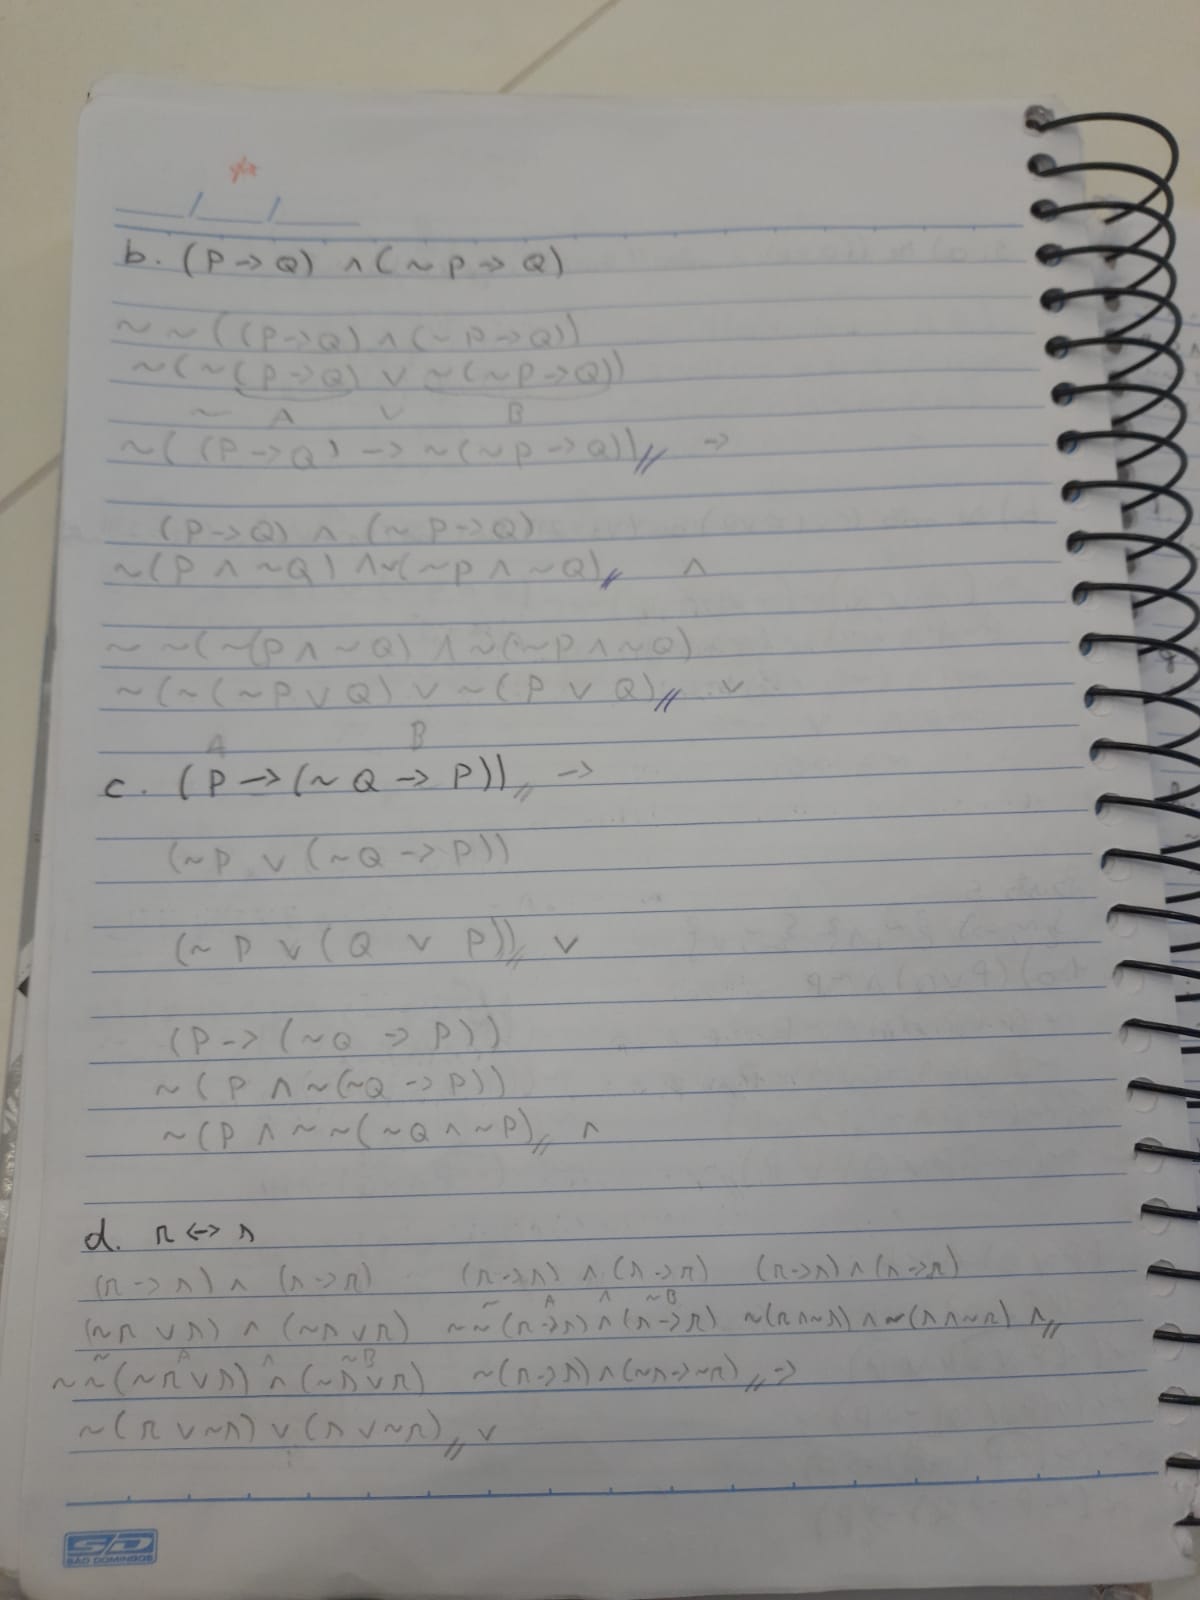 b. (P → Q) ∧ (~ P → Q)
~ ~ ((P → Q) ∧ (~ P → Q))
~ (~ (P → Q) ∨ ~ (~P → Q))
~ A ∨ B
~ ( (P → Q) → ~ (~ P → Q)) // →
(P → Q) ∧ (~ P → Q)
~ (P ∧ ~Q) ∧ ~(~P ∧ ~Q) // ∧
~ ~ (~(P ∧ ~Q) ∧ ~(~P ∧ ~Q)
~ (~ (~P ∨ Q) ∨ ~ (P ∨ Q) // ∨
A B
c. (P → (~ Q → P)) // →
(~P ∨ (~Q → P))
(~ P ∨ ( Q ∨ P)) // ∨
(P → (~Q → P))
~ ( P ∧ ~(~Q → P))
~ (P ∧ ~ ~ (~Q ∧ ~P) // ∧
d. r ↔ s
(r → s) ∧ (s → r) (r → s) ∧ (s → r) (r → s) ∧ (s → r)
~ A ∧ ~B
(~r ∨ s) ∧ (~s ∨ r) ~ ~ (r → s) ∧ (s → r) ~(r ∧ ~s) ∧ ~(s ∧ ~r) ∧ //
~ A ∧ ~B
~ ~ (~r ∨ s) ∧ (~s ∨ r) ~(r → s) ∧ (~s → ~r) // →
~ (r ∨ ~s) ∨ (s ∨ ~r) // ∨
SD
SÃO DOMINGOS